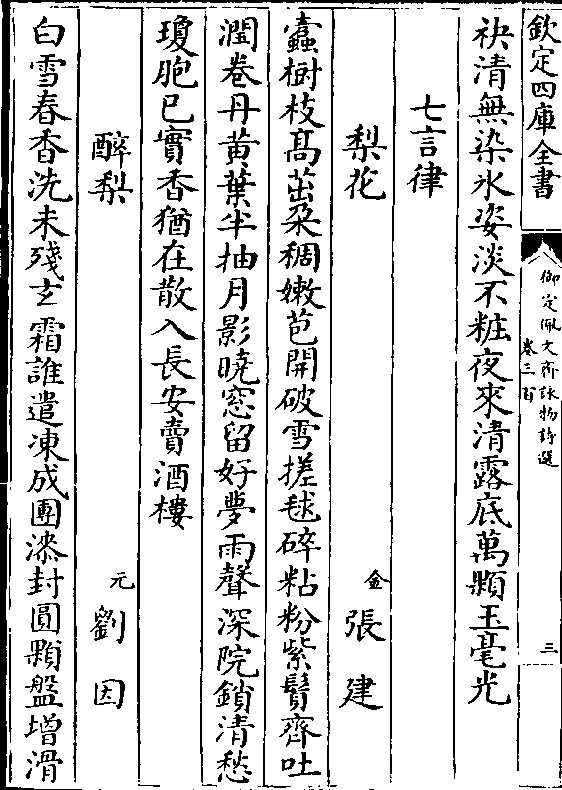 欽定四庫全書
御定佩文齋詠物詩選
卷三百
三
袂清無染冰姿淡不粧夜來清露底萬顆玉毫光
七言律
梨花
金 張建
蠧樹枝髙茁朶稠嫩苞開破雪搓毬碎粘粉紫鬚齊吐
潤卷丹黄葉半抽月影曉窓留好夢雨聲深院鎖清愁
瓊胞已實香猶在散入長安賣酒樓
醉梨
元 劉因
白雪春香洗未殘玄霜誰遣凍成團漆封圓顆盤增滑